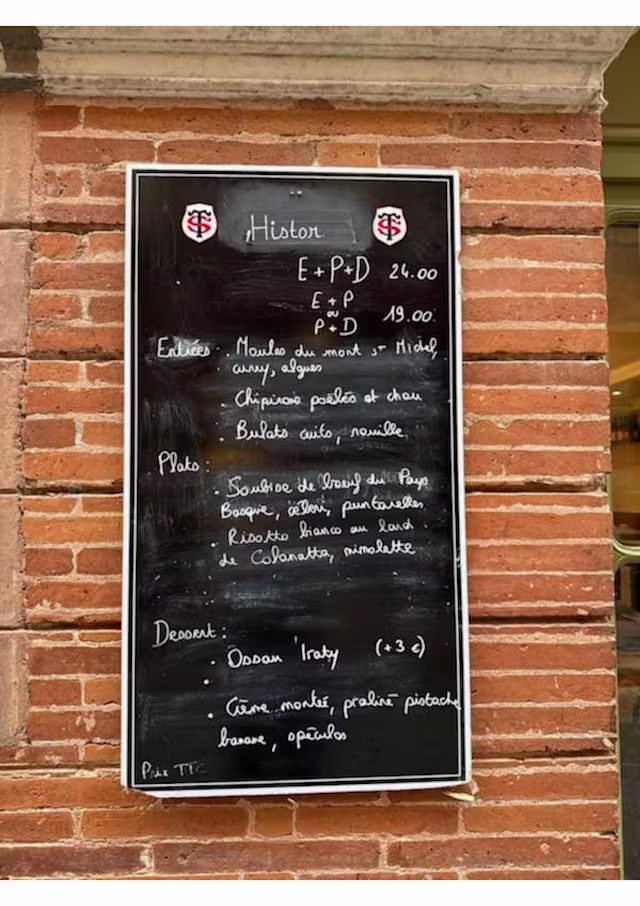 Histor
E + P + D 24.00
E + P
ou
P + D 19.00
Entrées : . Moules du mont St Michel,
curry, algues
. Chipirons poêlés et chou
. Bulots cuits, rouille
Plats :
. de boeuf du Pays
Basque, céleri, puntarelles
. Risotto bianco au lard
de Colonatta, mimolette
Dessert :
. Ossau Iraty (+3 €)
.
. Crème montée, praliné pistache
banane, spéculos
Prix TTC